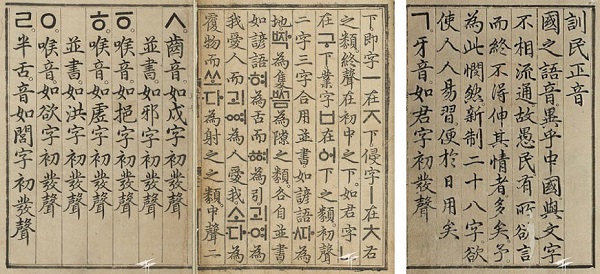 訓民正音
國之語音異乎中國與文字
不相流通故愚民有所欲言
而終不得伸其情者多矣予
為此憫然新制二十八字欲
使人人易習便於日用矣
ㄱ牙音如君字初發聲
下即字ㅡ在ㅈ下侵字ㅣ在ㅊ右
之類終聲在初中之下如君字ㄴ
在구下業字ㅂ在어下之類初聲
二字三字合用並書如諺語ᄯᅡ為
地ᄧᅡᆨ為隻ᄢᅳᆷ為隙之類各自並書
如諺語혀為舌而ᅘᅧ為引괴여為
我愛人而괴ᅇᅧ為人愛我소다為
覆物而쏘다為射之之類中聲二
ㅅ齒音如戌字初發聲
並書如邪字初發聲
ㆆ喉音如挹字初發聲
ㅎ喉音如虛字初發聲
並書如洪字初發聲
ㅇ喉音如欲字初發聲
ㄹ半舌音如閭字初發聲